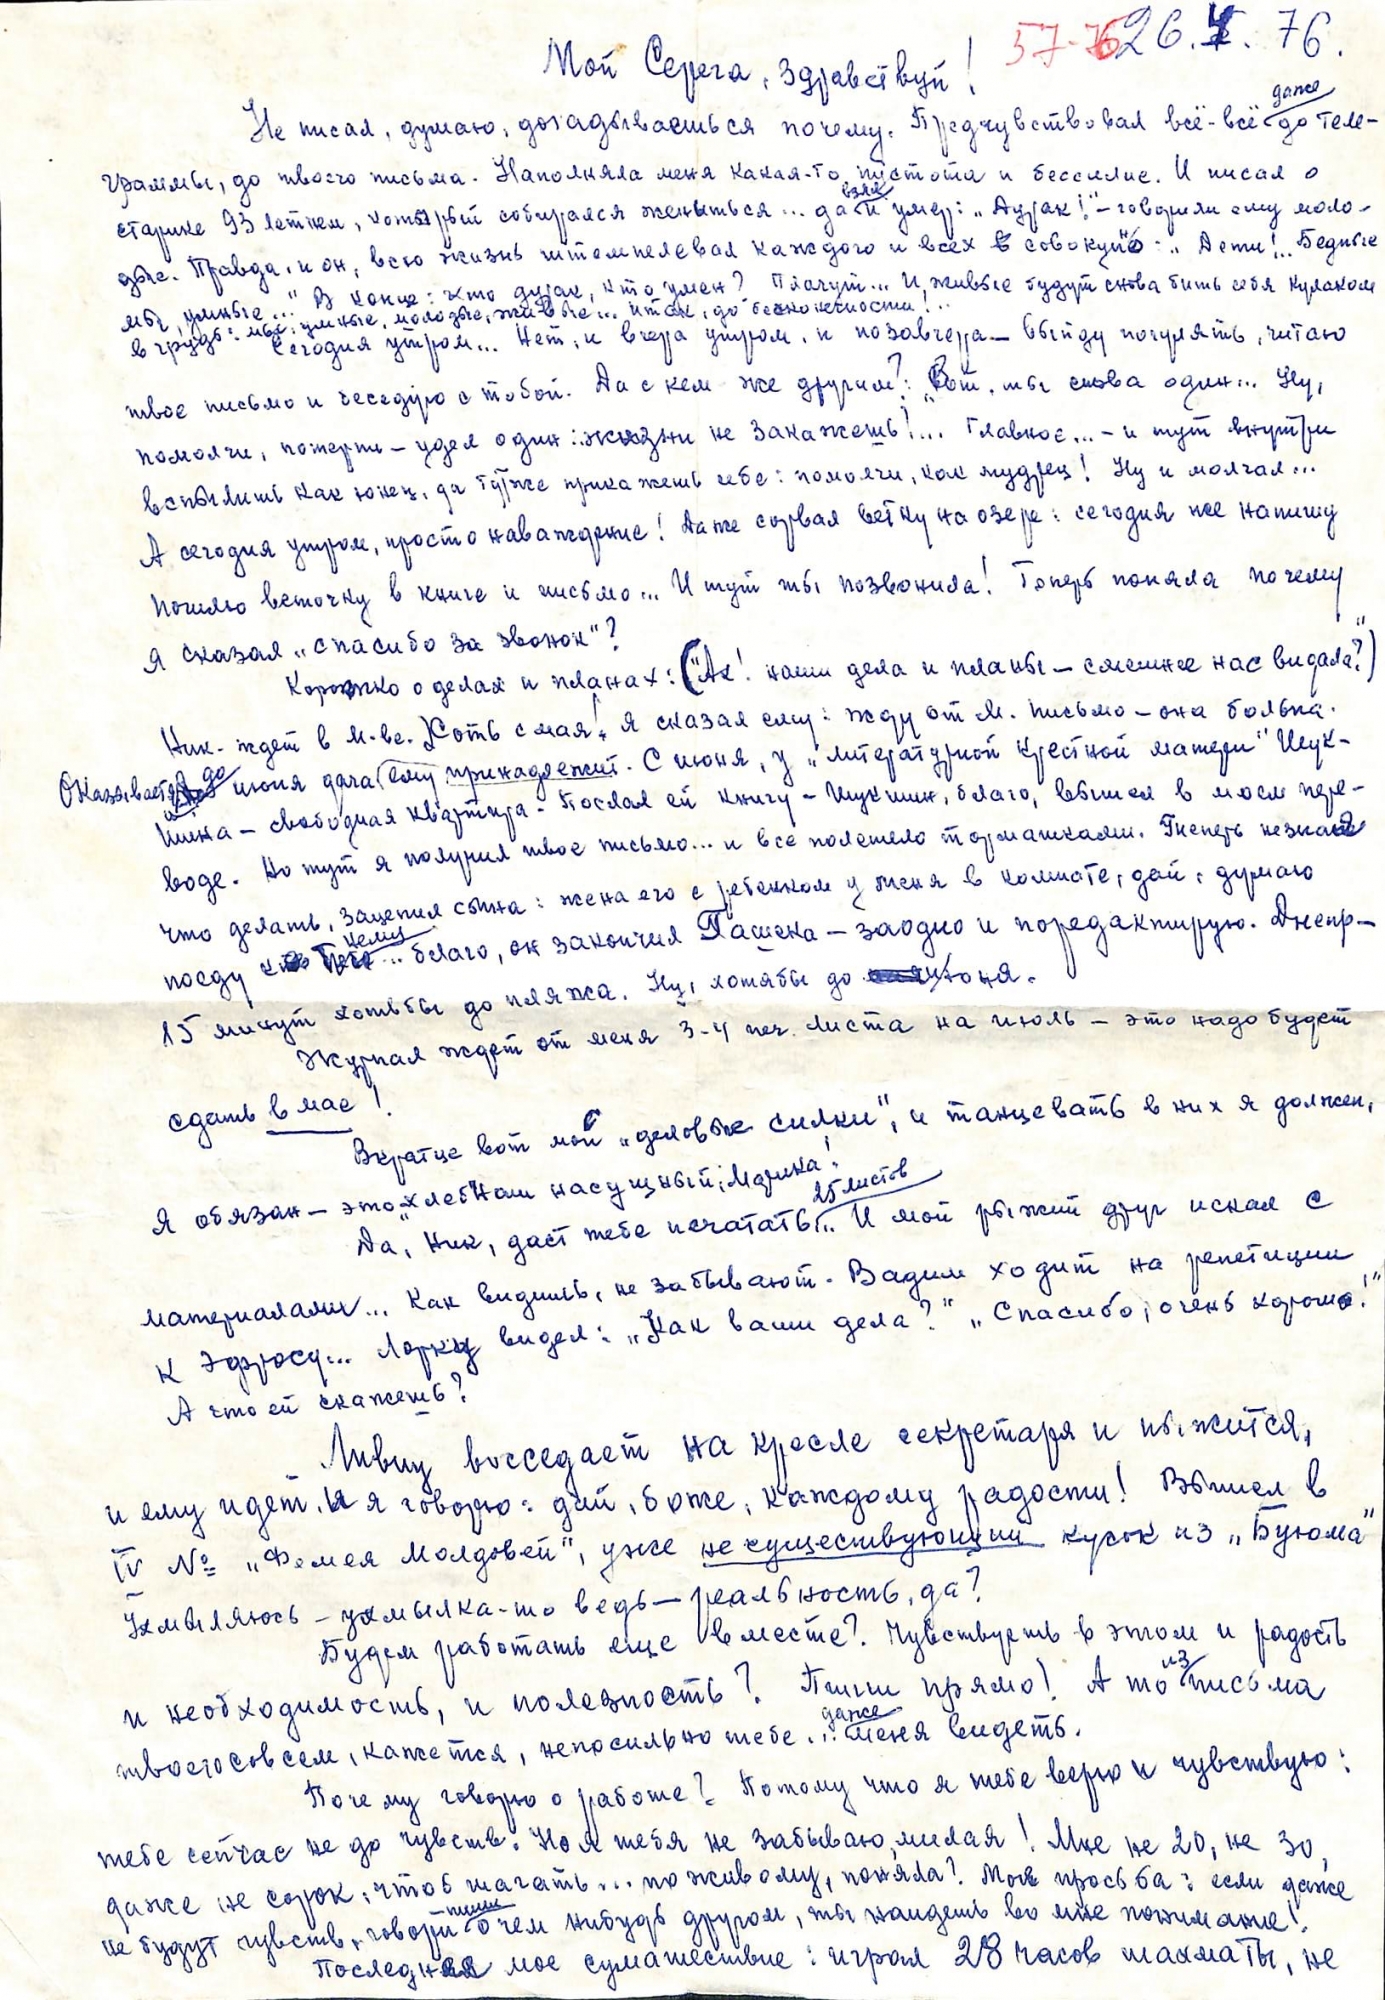 57-76 26.4.76.
Мой Серега, здравствуй!
Не писал, думаю, догадываешься почему. Предчувствовал всё-всё даже до теле-
граммы, до твоего письма. Наполняла меня какая-то пустота и бессилие. И писал о
старике 93 летнем, который собирался жениться... да взял и умер: „Дурак!" – говорили ему моло-
дые. Правда, и он, всю жизнь штемпелевал каждого и всех в совокупно: „Дети!.. Бедные
мы, умные..." В конце: кто дурак, кто умен? Плачут... И, живые будут снова бить себя кулаком
в грудь: мы, умные, молодые, живые... и так, до бесконечности!...
Сегодня утром... Нет, и вчера утром, и позавчера – выйду погулять, читаю
твое письмо и беседую с тобой. Да с кем же другим?: „Вот, мы снова один... Ну,
помолчи, потерпи – удел один: жизни не закажешь!... Главное... – и тут внутри
вспылишь как юнец, да тут же прикажешь себе: помолчи, как мудрец! Ну и молчал...
А сегодня утром, просто наваждение! Даже сорвал ветку на озере: сегодня же напишу
пошлю веточку в книге и письмо... И тут ты позвонила! Теперь поняла почему
я сказал „спасибо за звонок"?
Коротко о делах и планах: („Ах! наши дела и планы – смешнее нас видала?")
Ник. ждет в М-ве. Хоть с мая! Я сказал ему: жду от М. письмо – она больна.
Оказывается, до июня дача ему принадлежит. С июня, у „литературной крестной матери" Шук-
шина – свободная квартира. Послал ей книгу – Шукшин, благо, вышел в моем пере-
воде. Но тут я получил твое письмо... и все полетело тормашками. Теперь не знаю
что делать, зацепил сына: жена его с ребенком у меня в комнате, дай, думаю
поеду к нему... благо, он закончил Пашека – заодно и поредактирую. Днепр –
15 минут хотьбы до пляжа. Ну, хотябы до июня.
Журнал ждет от меня 3-4 печ. листа на июль – это надо будет
сдать в мае!
Вкратце вот мои „деловые силки", и танцевать в них я должен,
я обязан – это „хлеб наш насущный", Марика!
Да, Ник, даст тебе печатать 25 листов... И мой рыжий друг искал с
материалами... Как видишь, не забывают. Вадим ходит на репетиции
к Эфросу... Лорку видел: „Как ваши дела?" „Спасибо, очень хорошо!"
А что ей скажешь?
Ливиу восседает на кресле секретаря и пыжится,
и ему идет. И я говорю: дай, боже, каждому радости! Вышел в
IV № „Фемея Молдовей", уже не существующий кусок из „Буюма"
Ухмыляюсь – ухмылка-то ведь – реальность, да?
Будем работать еще вместе? Чувствуешь в этом и радость
и необходимость, и полезность? Пиши прямо! А то из письма
твоего совсем, кажется, непосильно тебе... даже меня видеть.
Почему говорю о работе? Потому что я тебе верю и чувствую:
тебе сейчас не до чувств. Но я тебя не забываю, милая! Мне не 20, не 30,
даже не сорок, чтоб шагать... по живому, поняла? Моя просьба: если даже
не будут чувств, говори пиши о чем нибудь другом, ты найдешь во мне понимание!
Последняя мое сумашествие: играл 28 часов шахматы, не